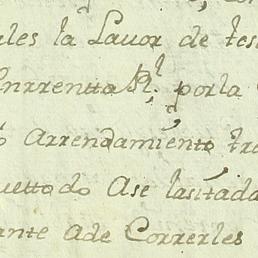 les la Lauor de tes
Inrrenta Rl. por la
Arrendamiento tra
uetto do Ase lasitada
ante ade Correrles